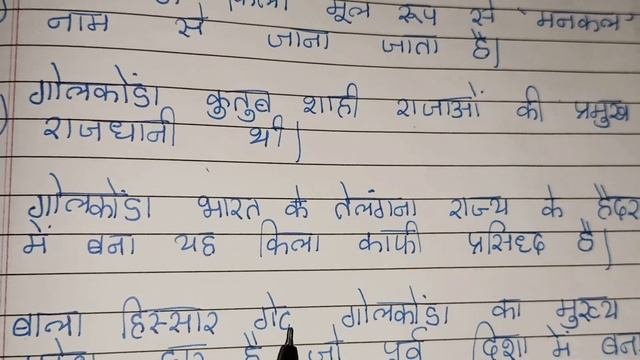 मूल रूप से मनकल
नाम से जाना जाता है|
गोलकोंडा कुतुब शाही राजाओं की प्रमुख
राजधानी थी|
गोलकोंडा भारत के तेलंगना राज्य के हैदर
में बना यह किला काफी प्रसिध्द है|
बाला हिस्सार गेट गोलकोंडा का मुख्य
है जो पूर्व दिशा में बन